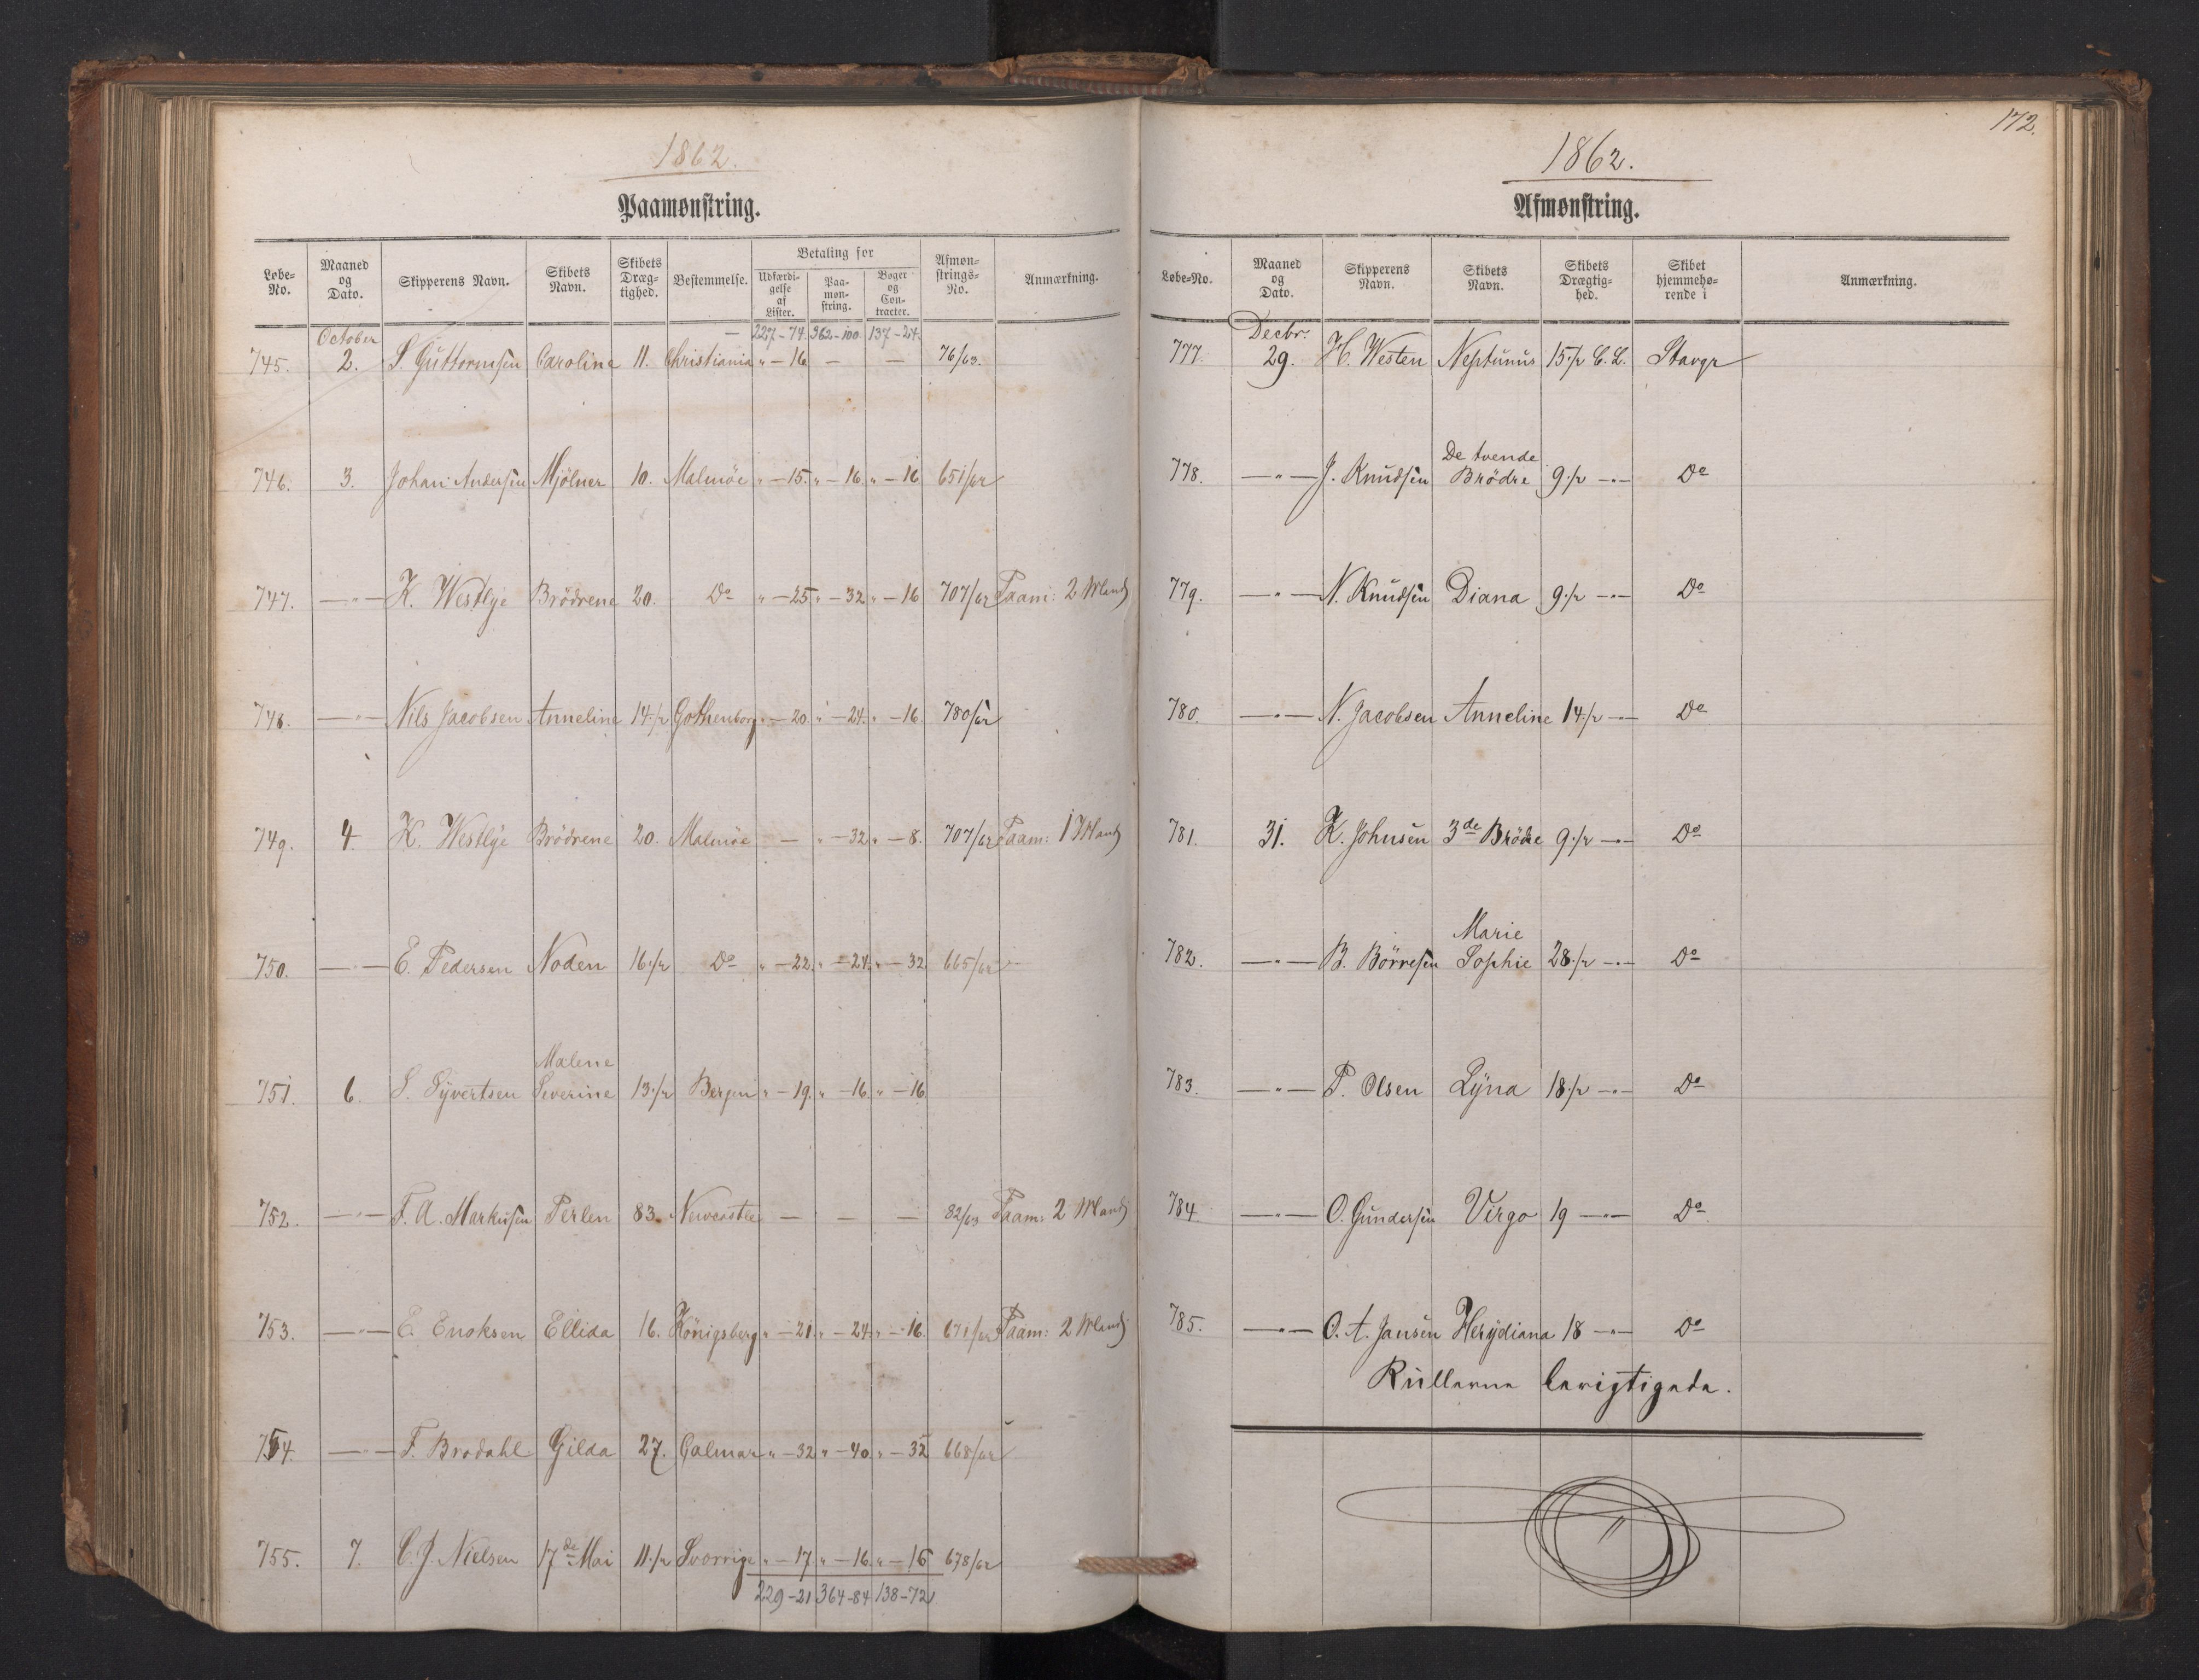 1862.
Paamønstring.
Løbe-No. Maaned og Dato. Skipperens Navn. Skibets Navn. Skibets Dræg-tighed. Bestemmelse. Betaling for Udfærdi-gelse af Lister. Paa-møn-string. Bøger og Con-tracter. Afmøn-strings-No. Anmærkning.
October — 227-74. 362-100. 137-24.
745. 2. S. Guttormsen Caroline 11. Christiania „-16 — — 76/63.
746. 3. Johan Andersen Mjölner 10. Malmöe „-15. „-16. „-16 651/62
747. —„— K. Westlye Brödrene 20. Do „-25 „-32 „-16 707/62 Paam: 2 Mand
748. —„— Nils Jacobsen Anneline 14½ Gothenborg „-20. „-24. „-16. 780/62
749. 4. K. Westlye Brödrene 20. Malmöe — „-32 „-8. 707/62 Paam: 1 Mand
750. —„— E. Pedersen Noden 16½ Do „-22 „-24. „-32 665/62
Malene
751. 6. S. Syvertsen Severine 13½ Bergen „-19. „-16. „-16
752. —„— F. A. Markusen Perlen 83. Newcastle — — — 82/63 Paam: 2 Mand
753. —„— E. Enoksen Ellida 16. Königsberg „-21. „-24. „-16. 671/62 Paam: 2 Mand
754. —„— F. Brodahl Gilda 27. Calmar „-32 „-40. „-32 668/62
755. 7. C. J. Nielsen 17de Mai 11½ Sverrige „-17. „-16. „-16 678/62
229-21 364-84 138-72
172.
1862.
Afmønstring.
Løbe-No. Maaned og Dato. Skipperens Navn. Skibets Navn. Skibets Drægtig-hed. Skibet hjemmehø-rende i Anmærkning.
Decbr.
777. 29. H. Westen Neptunus 15½ C. L. Stavgr
De tvende
778. —„— J. Knudsen Brödre 9½ —„— Do
779. —„— N. Knudsen Diana 9½ —„— Do
780. —„— N. Jacobsen Anneline 14½ —„— Do
781. 31. K. Johnsen 3de Brödre 9½ —„— Do
Marie
782. —„— B. Börresen Sophie 28½ —„— Do
783. —„— P. Olsen Lyna 18½ —„— Do
784. —„— O. Gundersen Virgo 19 —„— Do
785. —„— O. A. Jansen Herydiana 18 —„— Do
Rullerne berigtigede.